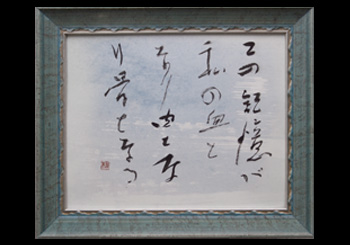 この記憶が
私の血と
なり肉とな
り骨となる